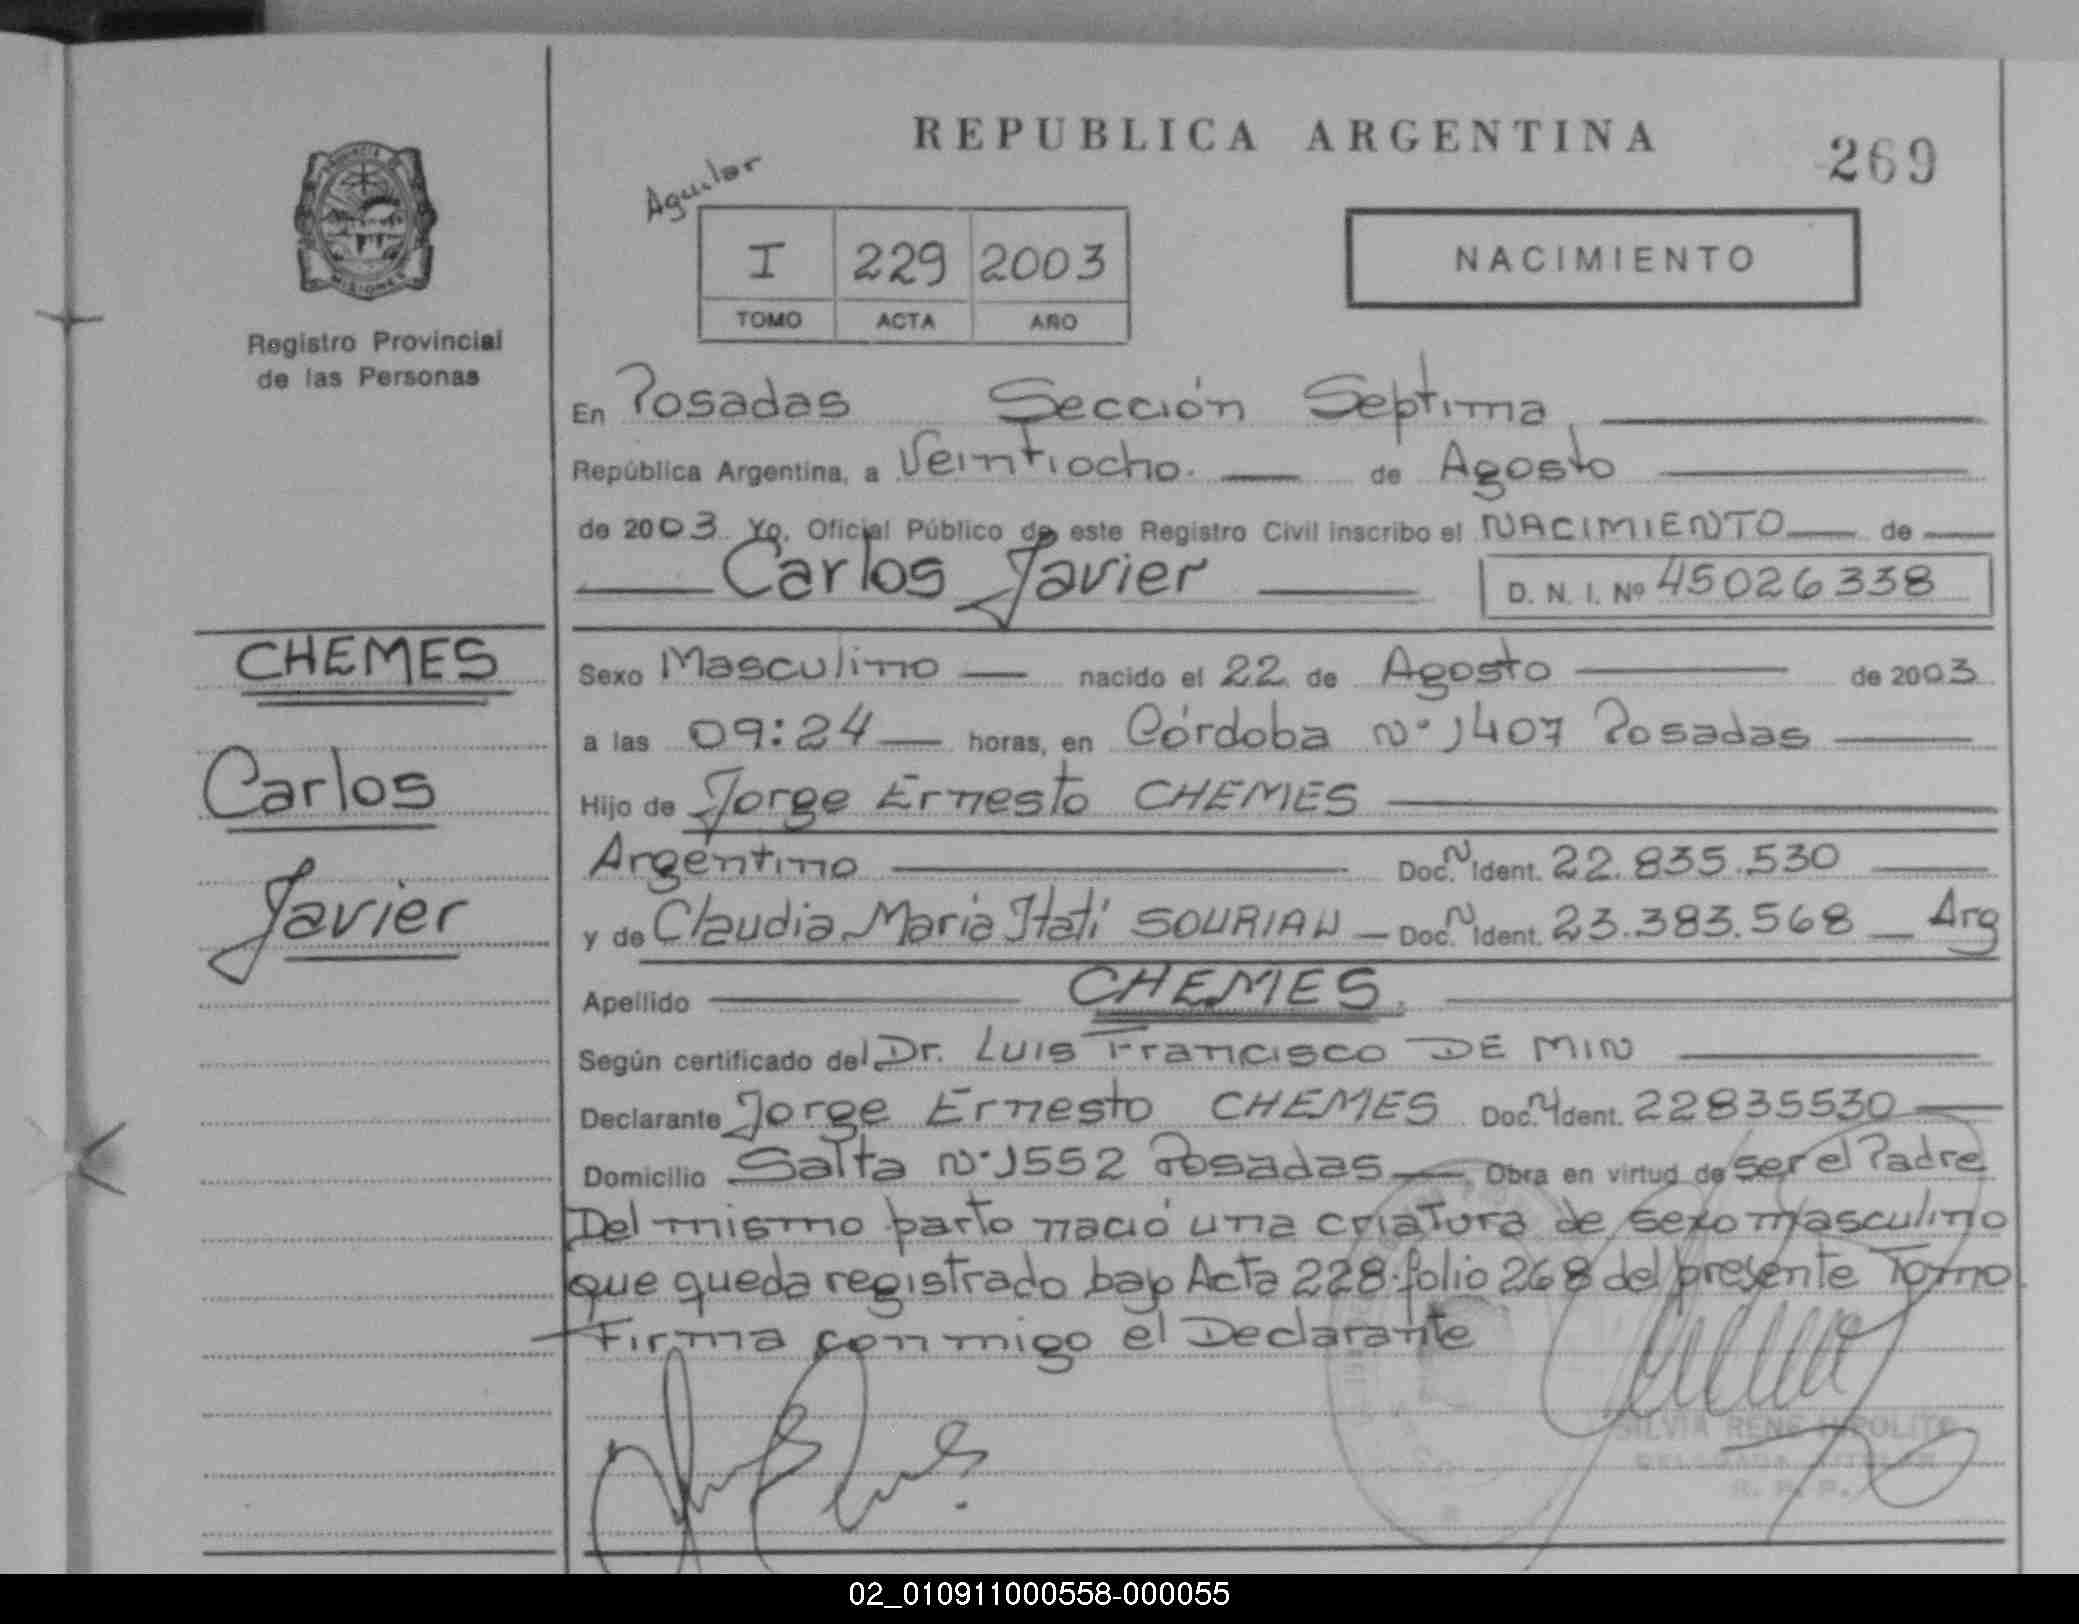 REPUBLICA ARGENTINA
269
Aguilar
I 229 2003
TOMO ACTA AÑO
NACIMIENTO
PROVINCIA DE
MISIONES
Registro Provincial
de las Personas
En Posadas Sección Septima
República Argentina, a Veintiocho. de Agosto
de 2003 Yo, Oficial Público de este Registro Civil inscribo el NACIMIENTO de
Carlos Javier
D. N. I. Nº 45026338
CHEMES
Carlos
Javier
Sexo Masculino nacido el 22 de Agosto de 2003
a las 09:24 horas, en Córdoba Nº 1407 Posadas
Hijo de Jorge Ernesto CHEMES
Argentino Doc. N Ident. 22.835.530
y de Claudia María Itatí SOURIAU Doc. N Ident. 23.383.568 Arg
Apellido CHEMES.
Según certificado del Dr. Luis Francisco DE MIN
Declarante Jorge Ernesto CHEMES Doc. N Ident. 22835530
Domicilio Salta Nº 1552 Posadas Obra en virtud de ser el Padre
Del mismo parto nació una criatura de sexo masculino
que queda registrado bajo Acta 228 folio 268 del presente Tomo
Firma conmigo el Declarante
SILVIA RENE HIPOLITO
R. P. P.
02_010911000558-000055